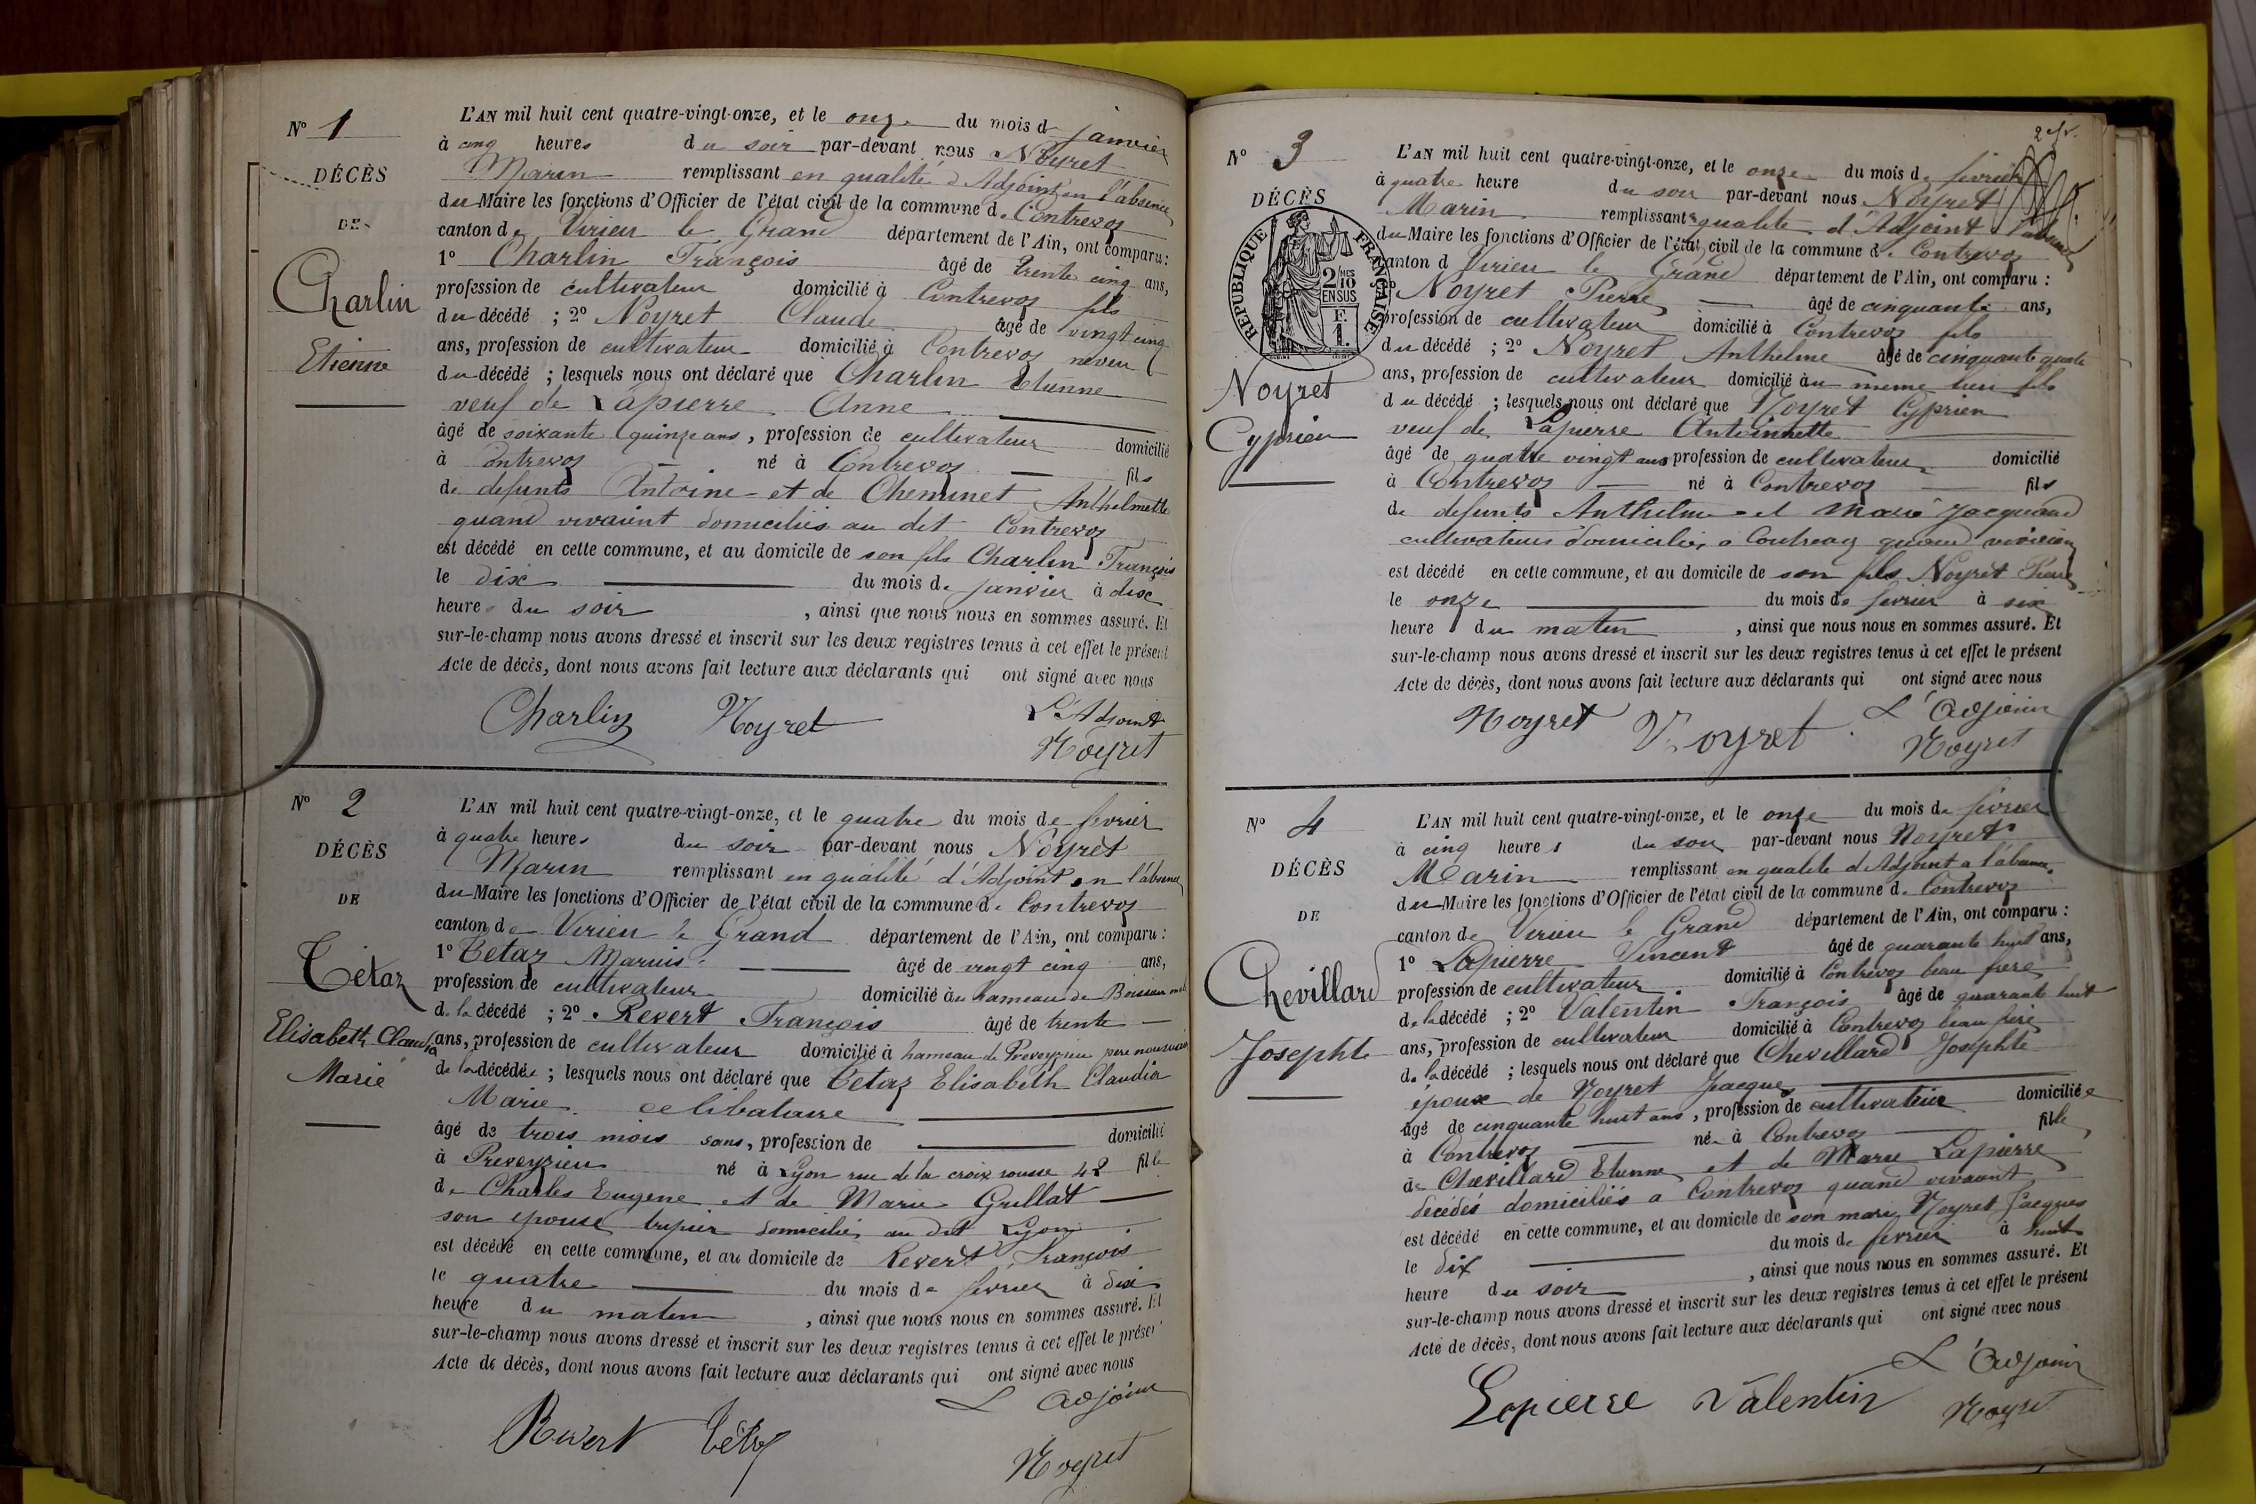 N° 1
DÉCÈS
DE
Charlin
Etienne
L'AN mil huit cent quatre-vingt-onze, et le onze du mois de janvier
à cinq heures du soir par-devant nous Noyret
Marin remplissant en qualité d'Adjoint en l'absence
du Maire les fonctions d'Officier de l'état civil de la commune de Contrevoz
canton de Virieu le Grand département de l'Ain, ont comparu :
1° Charlin François âgé de trente cinq ans,
profession de cultivateur domicilié à Contrevoz fils
du décédé ; 2° Noyret Claude âgé de vingt cinq
ans, profession de cultivateur domicilié à Contrevoz neveu
du décédé ; lesquels nous ont déclaré que Charlin Etienne
veuf de Lapierre Anne
âgé de soixante quinze ans, profession de cultivateur domicilié
à Contrevoz né à Contrevoz fils
de defunts Antoine et de Cheminet Anthelmette
quand vivaient domiciliés au dit Contrevoz
est décédé en cette commune, et au domicile de son fils Charlin François
le dix du mois de janvier à dix
heures du soir, ainsi que nous nous en sommes assuré. Et
sur-le-champ nous avons dressé et inscrit sur les deux registres tenus à cet effet le présent
Acte de décès, dont nous avons fait lecture aux déclarants qui ont signé avec nous
Charlin Noyret L'Adjoint
Noyret
N° 2
DÉCÈS
DE
Tétaz
Elisabeth Claudia
Marie
L'AN mil huit cent quatre-vingt-onze, et le quatre du mois de fevrier
à quatre heures du soir par-devant nous Noyret
Marin remplissant en qualité d'Adjoint en l'absence
du Maire les fonctions d'Officier de l'état civil de la commune de Contrevoz
canton de Virieu le Grand département de l'Ain, ont comparu :
1° Tetaz Marius âgé de vingt cinq ans,
profession de cultivateur domicilié au hameau de
de la décédé ; 2° Revert François âgé de trente
ans, profession de cultivateur domicilié à hameau de Preveyzieu pere nourricier
de la décédée ; lesquels nous ont déclaré que Tetaz Elisabeth Claudia
Marie celibataire
âgé de trois mois sans, profession de domicilié
à Preveyzieu né à Lyon rue de la croix rousse 42 fille
de Charles Eugene et de Marie Grillat
son epouse tripier domicilies au dit Lyon
est décédé en cette commune, et au domicile de Revert François
le quatre du mois de fevrier à dix
heure du matin, ainsi que nous nous en sommes assuré. Et
sur-le-champ nous avons dressé et inscrit sur les deux registres tenus à cet effet le présent
Acte de décès, dont nous avons fait lecture aux déclarants qui ont signé avec nous
L'adjoint
Revert Tétaz
Noyret
N° 3
DÉCÈS
RÉPUBLIQUE FRANÇAISE
2/10 EN SUS
F. 1.
Noyret
Cyprien
L'AN mil huit cent quatre-vingt-onze, et le onze du mois de fevrier
à quatre heure du soir par-devant nous Noyret
Marin remplissant qualité d'Adjoint l'absence
du Maire les fonctions d'Officier de l'état civil de la commune de Contrevoz
canton d Virieu le Grand département de l'Ain, ont comparu :
Noyret Pierre âgé de cinquante ans,
profession de cultivateur domicilié à Contrevoz fils
du décédé ; 2° Noyret Anthelme âgé de cinquante quatre
ans, profession de cultivateur domicilié au meme lieu fils
du décédé ; lesquels nous ont déclaré que Noyret Cyprien
veuf de Lapierre Antoinnette
âgé de quatre vingt ans profession de cultivateur domicilié
à Contrevoz né à Contrevoz fils
de defunts Anthelme et Marie Jacquand
cultivateurs domicilies a Contrevoz quand
est décédé en cette commune, et au domicile de son fils Noyret Pierre
le onze du mois de fevrier à six
heure du matin, ainsi que nous nous en sommes assuré. Et
sur-le-champ nous avons dressé et inscrit sur les deux registres tenus à cet effet le présent
Acte de décès, dont nous avons fait lecture aux déclarants qui ont signé avec nous
Noyret Noyret L'adjoint
Noyret
N° 4
DÉCÈS
DE
Chevillard
Josephte
L'AN mil huit cent quatre-vingt-onze, et le onze du mois de fevrier
à cinq heures du soir par-devant nous Noyret
Marin remplissant en qualité d'Adjoint a l'absence
du Maire les fonctions d'Officier de l'état civil de la commune de Contrevoz
canton de Virieu le Grand département de l'Ain, ont comparu :
1° Lapierre Vincent âgé de quarante huit ans,
profession de cultivateur domicilié à Contrevoz beau frere
de la décédé ; 2° Valentin François âgé de quarante huit
ans, profession de cultivateur domicilié à Contrevoz beau frere
de la décédé ; lesquels nous ont déclaré que Chevillard Josephte
épouse de Noyret Jacques
âgé de cinquante huit ans, profession de cultivateur domiciliée
à Contrevoz née à Contrevoz fille
de Chevillard Etienne et de Marie Lapierre
décédés domiciliés a Contrevoz quand vivaient
est décédé en cette commune, et au domicile de son mari Noyret Jacques
le dix du mois de fevrier à huit
heure du soir, ainsi que nous nous en sommes assuré. Et
sur-le-champ nous avons dressé et inscrit sur les deux registres tenus à cet effet le présent
Acte de décès, dont nous avons fait lecture aux déclarants qui ont signé avec nous
L'adjoint
Lapierre Valentin Noyret